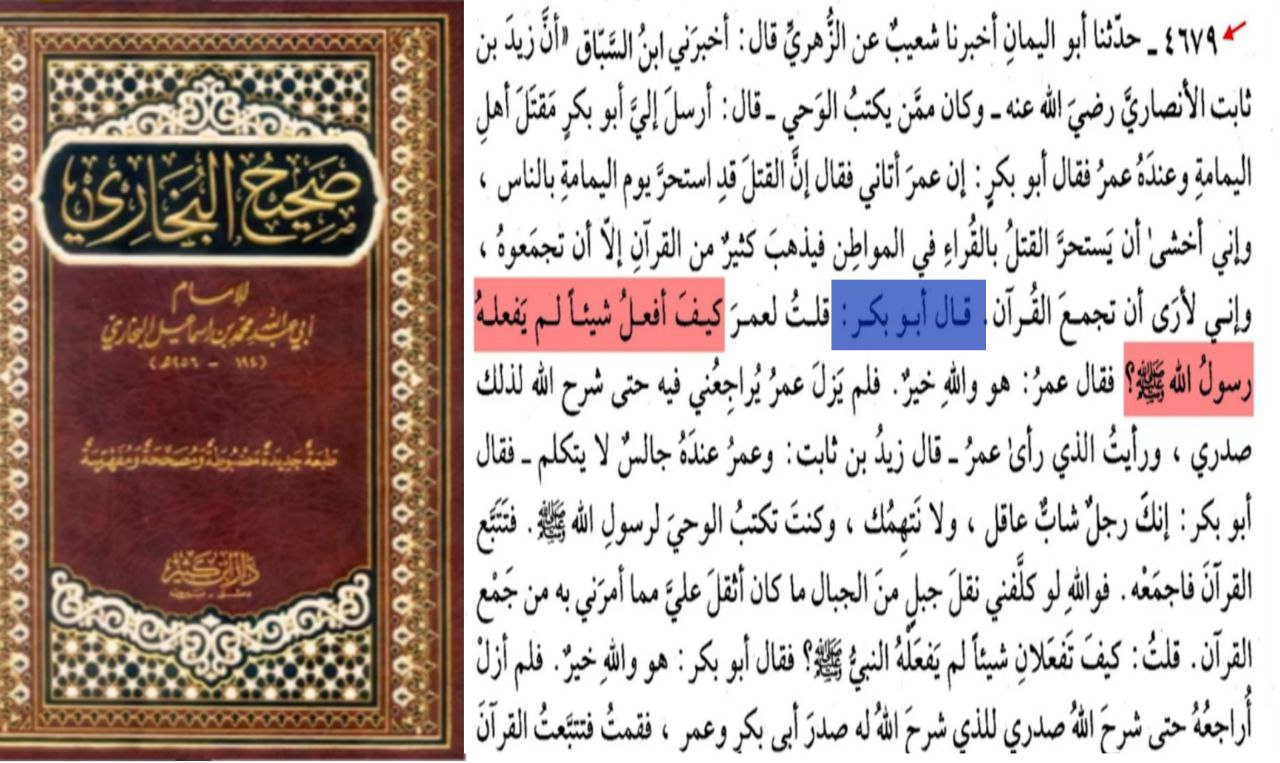 صَحِيحُ البُخَارِيّ
للإمام
أبي عبد الله محمد بن إسماعيل البخاري
(١٩٤ - ٢٥٦هـ)
طبعة جديدة مضبوطة ومصححة ومفهرسة
دار ابن كثير
دمشق - بيروت
٤٦٧٩ ـ حدّثنا أبو اليمانِ أخبرنا شعيبٌ عن الزُّهريِّ قال: أخبرَني ابنُ السَّبّاق «أنَّ زيدَ بن
ثابت الأنصاريَّ رضيَ الله عنه ـ وكان ممَّن يكتبُ الوَحي ـ قال: أرسلَ إليَّ أبو بكرٍ مَقتَلَ أهلِ
اليمامةِ وعندَهُ عمرُ فقال أبو بكرٍ: إن عمرَ أتاني فقال إنَّ القتلَ قدِ استحرَّ يوم اليمامةِ بالناس ،
وإني أخشىٰ أن يَستحرَّ القتلُ بالقُراءِ في المواطِن فيذهبَ كثيرٌ من القرآنِ إلاّ أن تجمَعوهُ ،
وإنـي لأرَى أن تجمـعَ القُـرآن. قـال أبـو بكـر: قلـتُ لعمـرَ كيـفَ أفعـلُ شيئـاً لـم يَفعلـهُ
رسولُ الله ﷺ؟ فقال عمرُ: هو واللهِ خيرٌ. فلم يَزلَ عمرُ يُراجِعُني فيه حتى شرح الله لذلك
صدري ، ورأيتُ الذي رأىٰ عمرُ ـ قال زيدُ بن ثابت: وعمرُ عندَهُ جالسٌ لا يتكلم ـ فقال
أبو بكر: إنكَ رجلٌ شابٌّ عاقل ، ولا نَتهِمُك ، وكنتَ تكتبُ الوحيَ لرسولِ الله ﷺ. فتَتَبَّع
القرآنَ فاجمَعْه. فواللهِ لو كلَّفني نقلَ جبلٍ منَ الجبال ما كان أثقلَ عليَّ مما أمرَني به من جَمْع
القرآن. قلتُ: كيفَ تَفعَلانِ شيئاً لم يَفعَلْهُ النبيُّ ﷺ؟ فقال أبو بكر: هو واللهِ خيرٌ. فلم أزلْ
أُراجعُهُ حتى شرحَ اللهُ صدري للذي شرحَ اللهُ له صدرَ أبي بكرٍ وعمر ، فقمتُ فتتبَّعتُ القرآنَ